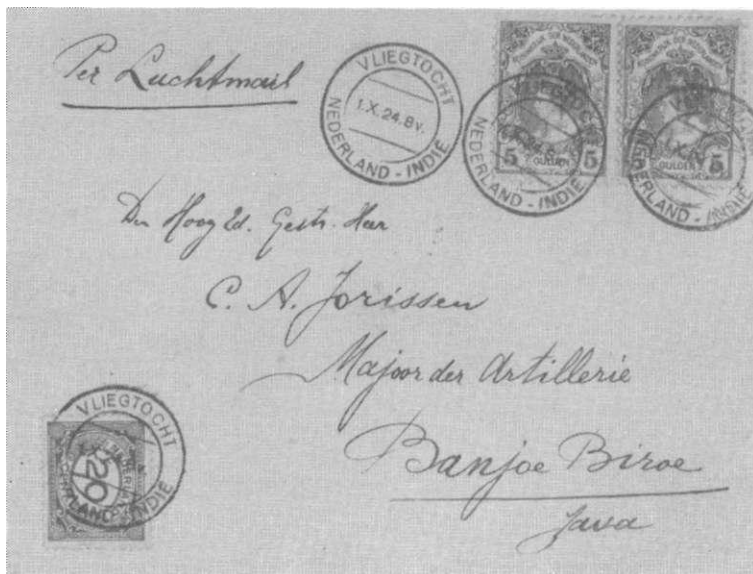 Per Luchtmail
VLIEGTOCHT
1.X.24.8v.
NEDERLAND - INDIË
VLIEGTOCHT
NEDERLAND - INDIË
5 GULDEN 5
NEDERLAND - INDIË
5 GULDEN 5
Den Hoog Ed. Gestr. Heer
C. A. Jorissen
Majoor der Artillerie
Banjoe Biroe
Java
VLIEGTOCHT
20